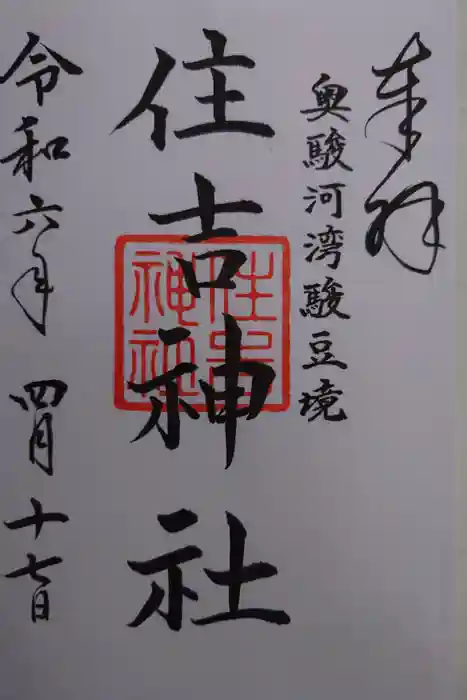 奉拝
奥駿河湾駿豆境
住吉神社
住吉神社
令和六年 四月十七日